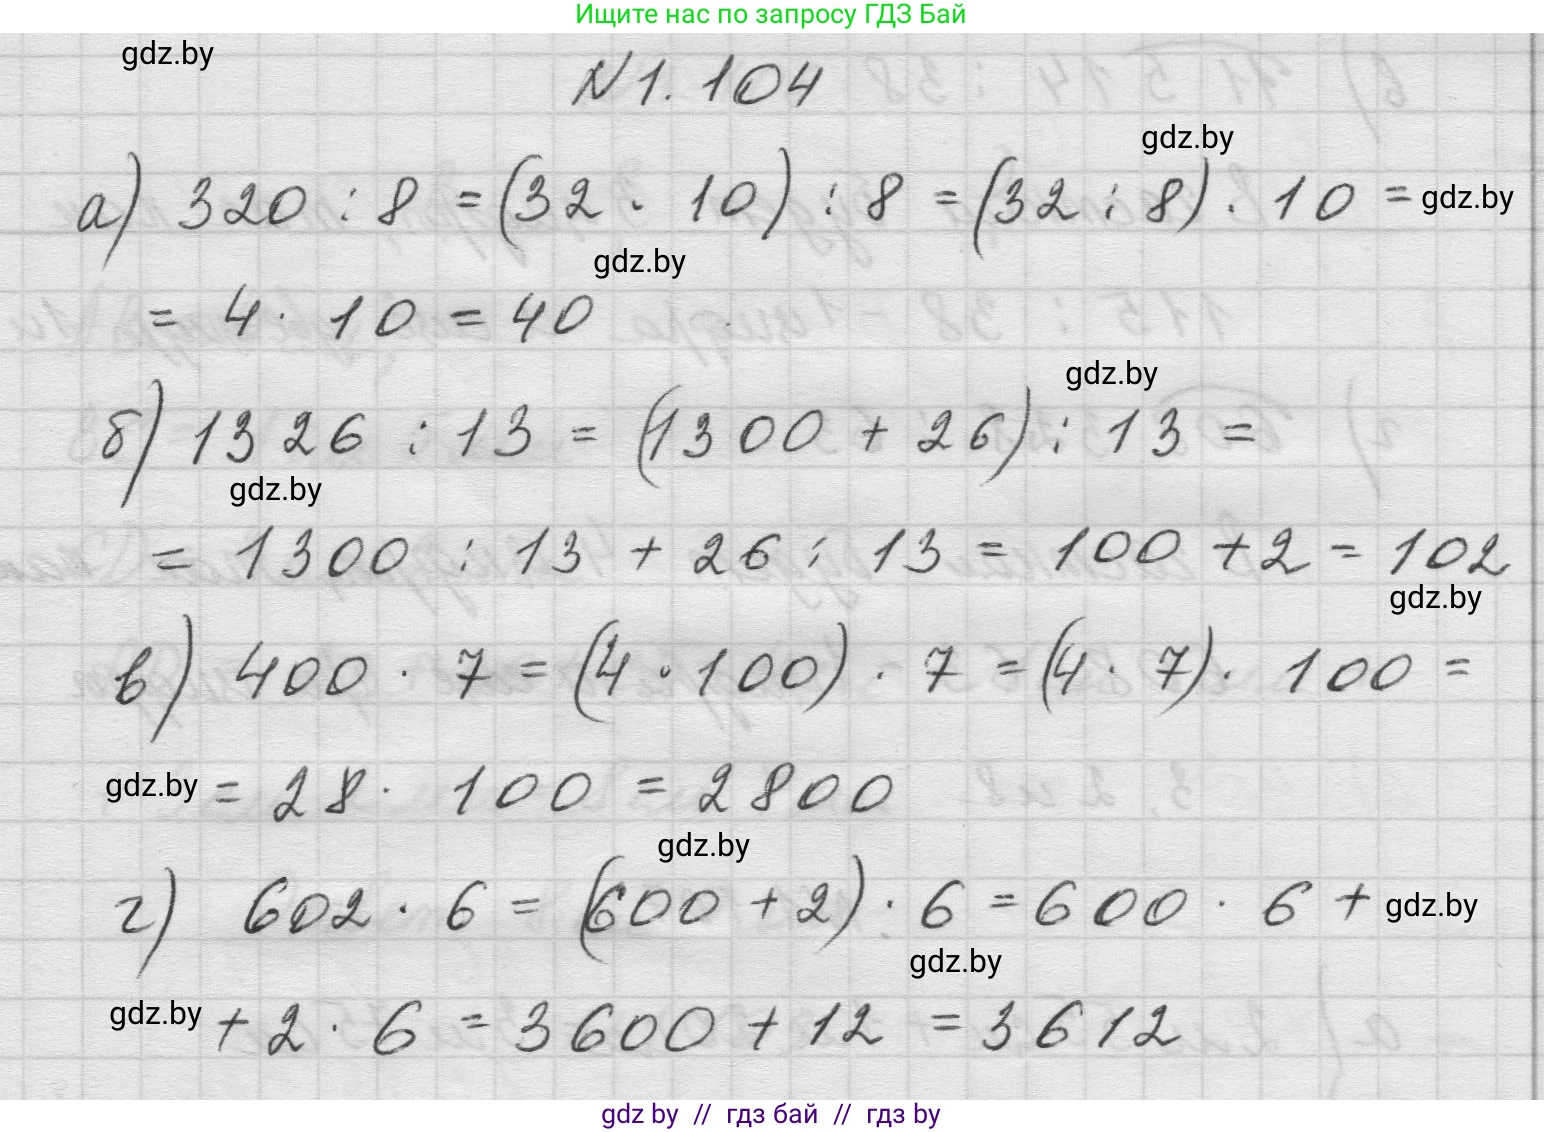 Ищите нас по запросу ГДЗ Бай
gdz.by
N 1. 104
gdz.by
а) 320 : 8 = (32 · 10) : 8 = (32 : 8) · 10 = gdz.by
gdz.by
= 4 · 10 = 40
gdz.by
б) 1326 : 13 = (1300 + 26) : 13 =
gdz.by
= 1300 : 13 + 26 : 13 = 100 + 2 = 102
gdz.by
в) 400 · 7 = (4 · 100) · 7 = (4 · 7) · 100 =
gdz.by = 28 · 100 = 2800
gdz.by
г) 602 · 6 = (600 + 2) · 6 = 600 · 6 + gdz.by
gdz.by
gdz.by + 2 · 6 = 3600 + 12 = 3612
gdz by // гдз бай // гдз by